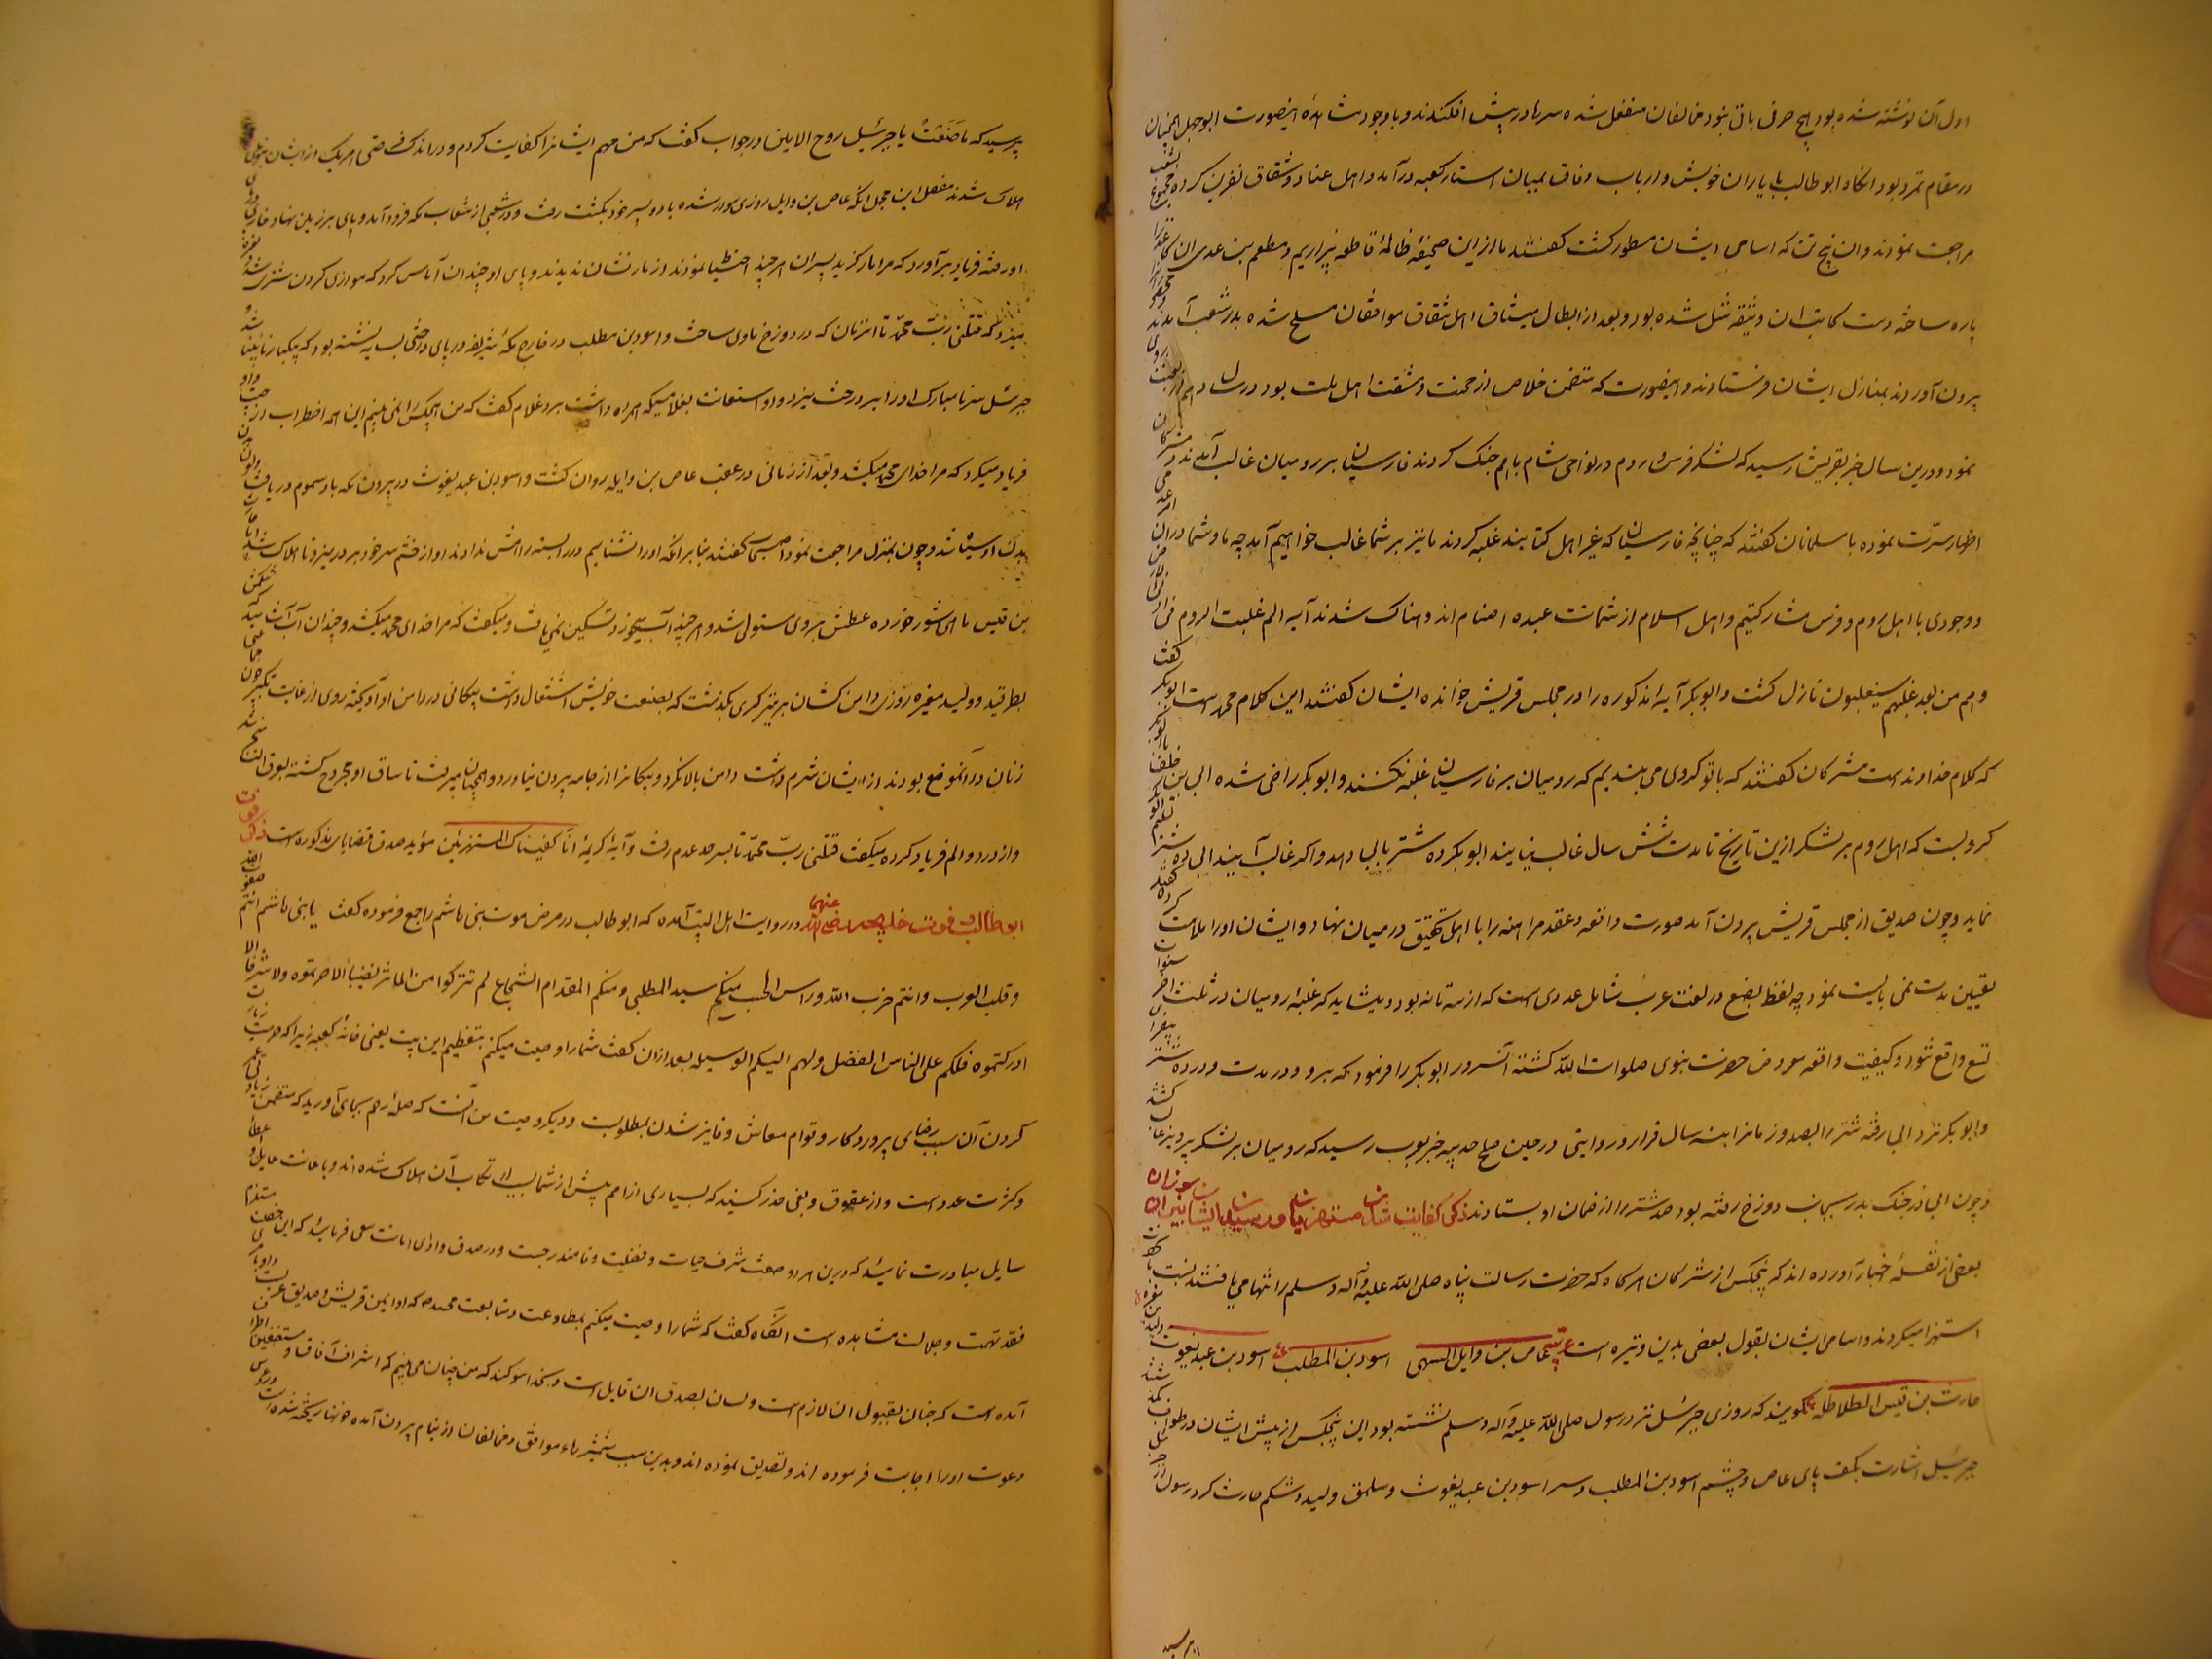 اول آن نوشته شده بود هیچ حرفی باقی نبود مخالفان منفعل شده سرها در پیش افکندند و با وجود مشاهده اینصورت ابوجهل همچنان
در مقام تمرد بود آنکاه ابو طالب با یاران خویش و ارباب وفاق بمیان استار کعبه درآمد و اهل عناد و شقاق نفرین کرده بشعب
مراجعت نمودند و آن پنج تن که اسامی ایشان مسطور کشت کفتند ما از این صحیفهٔ ظالمهٔ قاطعه بیزاریم و مطعم بن عدی آن کاغذ را
پاره ساخته دست کاتب آن وثیقه شل شده بود و بعد از ابطال میثاق اهل شقاق موافقان مسلح شده بدر شعب آمدند
بیرون آوردند بمنازل ایشان فرستادند و اینصورت که متضمن خلاص از محنت و مشقت اهل ملت بود در سال دهم از بعثت روی
نمود و درین سال خبر بقریش رسید که لشکر فرس و روم در نواحی شام باهم جنک کردند فارسیان بر رومیان غالب آمدند مشرکان
اظهار مسرّت نموده با مسلمانان کفتند که چنانچه فارسیان که غیر اهل کتابند غلبه کردند ما نیز بر شما غالب خواهیم آمد چه ما و شما در آن
و وجودی با اهل روم و فرس مشارکتیم و اهل اسلام از شماتت عبده اصنام اندوهناک شدند آیه الم غلبت الروم فی ادنی الارض
و هم من بعد غلبهم سیغلبون نازل کشت و ابوبکر آیهٔ مذکوره را در مجلس قریش خوانده ایشان کفتند این کلام محمد است ابوبکر کفت
که کلام خداوند است مشرکان کفتند که با تو کروی می بندیم که رومیان بر فارسیان غلبه نکنند و ابوبکر راضی شده ابی بن خلف با ابوبکر
کرو بست که اهل روم بر لشکر ازین تاریخ تا مدت شش سال غالب نیایند ابوبکر ده شتر بابی دهد و اکر غالب آیند ابی ده شتر
نماید و چون صدیق از مجلس قریش بیرون آمد صورت واقعه و عقد مراهنه را با اهل تحقیق در میان نهاد و ایشان او را ملامت کرده کفتند
تعیین مدت نمی بایست نمود چه لفظ بضع در لغت عرب شامل عددی است که از سه تا نه بود و میشاید که غلبهٔ رومیان در ثلث
تسع واقع شود و کیفیت واقعه معروض حضرت نبوی صلوات الله کشته آنسرور ابوبکر را فرمود که برو و در مدت و در ده شتر
و ابوبکر نزد ابی رفته شتر را بصد و زمانرا بنه سال قرار داد و روایتی در حین صلح حدیبیه خبر بعرب رسید که رومیان بر لشکر پرویز غالب کشتند
و چون ابی در جنک بدر بسجین دوزخ رفته بود صد شتر را از ضامن او بستادند ذکر کفایت شدن
بعضی از نقلهٔ اخبار آورده اند که پنجکس از مشرکان هرکاه که حضرت رسالت پناه صلی الله علیه و آله و سلم را تنها می یافتند نسبت
استهزا میکردند و اسامی ایشان بقول بعضی بدین وتیره است عاص بن وایل السهمی اسود بن المطلب اسود بن عبد یغوث ولید بن مغیره
حارث بن قیس الطلاطله کویند که روزی جبرئیل نزد رسول صلی الله علیه و آله و سلم نشسته بود این پنجکس از پیش ایشان در طواف
جبرئیل اشارت بکف پای عاص و چشم اسود بن المطلب و سر اسود بن عبد یغوث و ساق ولید و شکم حارث کرد رسول از جبرئیل
پرسید
پرسید که ما صَنَعْتَ یا جبرئیل روح الامین در جواب کفت که من مهم ایشانرا کفایت کردم و در اندک فرصتی هریک از ایشان بنوعی
هلاک شدند مفصل این مجمل آنکه عاص بن وایل روزی سوار شده با دو پسر خود بکشت رفت و در شعبی از شعاب مکه فرود آمد و پای بر زمین نهاد خاری
او رفته فریاد برآورد که مرا مار کزید پسران هر چند احتیاط نمودند از مار نشان ندیدند و پای او چندان آماس کرد که موازی کردن شتر شد
میزد که قتلنی ربّ محمّد تا آنزمان که در دوزخ ماوی ساخت و اسود بن مطلب در خارج مکهٔ شریفه در پای درختی بسایه نشسته بود که
جبرئیل سر نامبارک او را بر درخت میزد و او استعانت بغلامیکه همراه داشت برد غلام کفت که من هیچکس را نمی بینم این همه اضطراب از چیست
فریاد میکرد که مرا خدای محمد میکشد و بعد از زمانی در عقب عاص بن وایل روان کشت و اسود بن عبد یغوث در بیرون مکه باد سموم دریافت
بدنش سیاه شد و چون بمنزل مراجعت نمود کفتند بنابر آنکه او را نشناسیم در را بسته راهش ندادند او از خشم سر خود بر در میزد تا هلاک شد
بن قیس ماهی شور خورده عطش بر وی مستولی شد و هر چند آب میخورد تسکین نمی یافت و میکفت که مرا خدای محمد میکشد و چندان آب
بطرقید و ولید مغیره روزی دامن کشان بر تیرکری بکذشت که بصنعت خویش اشتغال داشت پیکانی در دامن او آویخته روی از غایت تکبر
زنان در آنموضع بودند از ایشان شرم داشت دامن بالا نکرد و پیکانرا از جامه بیرون نیاورد و همچنان میرفت تا ساق او مجروح کشته
و از درد و الم فریاد کرده میکفت قتلنی ربّ محمّد تا بسرحد عدم رفت و آیهٔ کریمهٔ انّا کفیناک المستهزئین مؤید صدق قضایای مذکوره است ذکر فوت
ابوطالب و فوت خدیجه رضی الله عنهما در روایت اهل البیت آمده که ابو طالب در مرض موت بنی هاشم را جمع فرموده کفت یا بنی هاشم انتم صفوة الله
و قلب العرب و انتم حزب الله و راس الحسب منکم سید المطلبی و منکم المقدام الشجاع لم تترکوا من المآثر نصیبا الا حزتموه ولا شرفا الا
ادرکتموه فلکم علی الناس الفضل و لهم الیکم الوسیله بعد از آن کفت شما را وصیت میکنم بتعظیم این بیت یعنی خانهٔ کعبه زیرا که
کردن آن سبب رضای پروردکار و قوام معاش و فایز شدن بمطلوبست و دیکر وصیت من آنست که صلهٔ رحم بجای آورید که متضمن
و کثرت عدد است و از عقوق و بغی حذر کنید که بسیاری از امم پیش از شما بسبب ارتکاب آن هلاک شده اند و باعانت
سایل مبادرت نمائید که درین هر دو صفت شرف حیات و فضیلت وفا مندرجست و در صدق و ادای امانت سعی فرمائید که این خصلت
فقد تهمت و جلالت مشاهده است آنکاه کفت که شما را وصیت میکنم بمطاوعت و متابعت محمد که او امین قریش و صدیق عربست
آمده است که جنان بقبول آن لازم است و لسان بصدق آن قایل است و بخدا سوکند که من چنان می بینم که اشراف آفاق و
دعوت او را اجابت فرموده اند و تصدیق نموده اند و بدین سبب شمشیرهاء موافق و مخالفان از نیام بیرون آمده خونها ریخته شده است